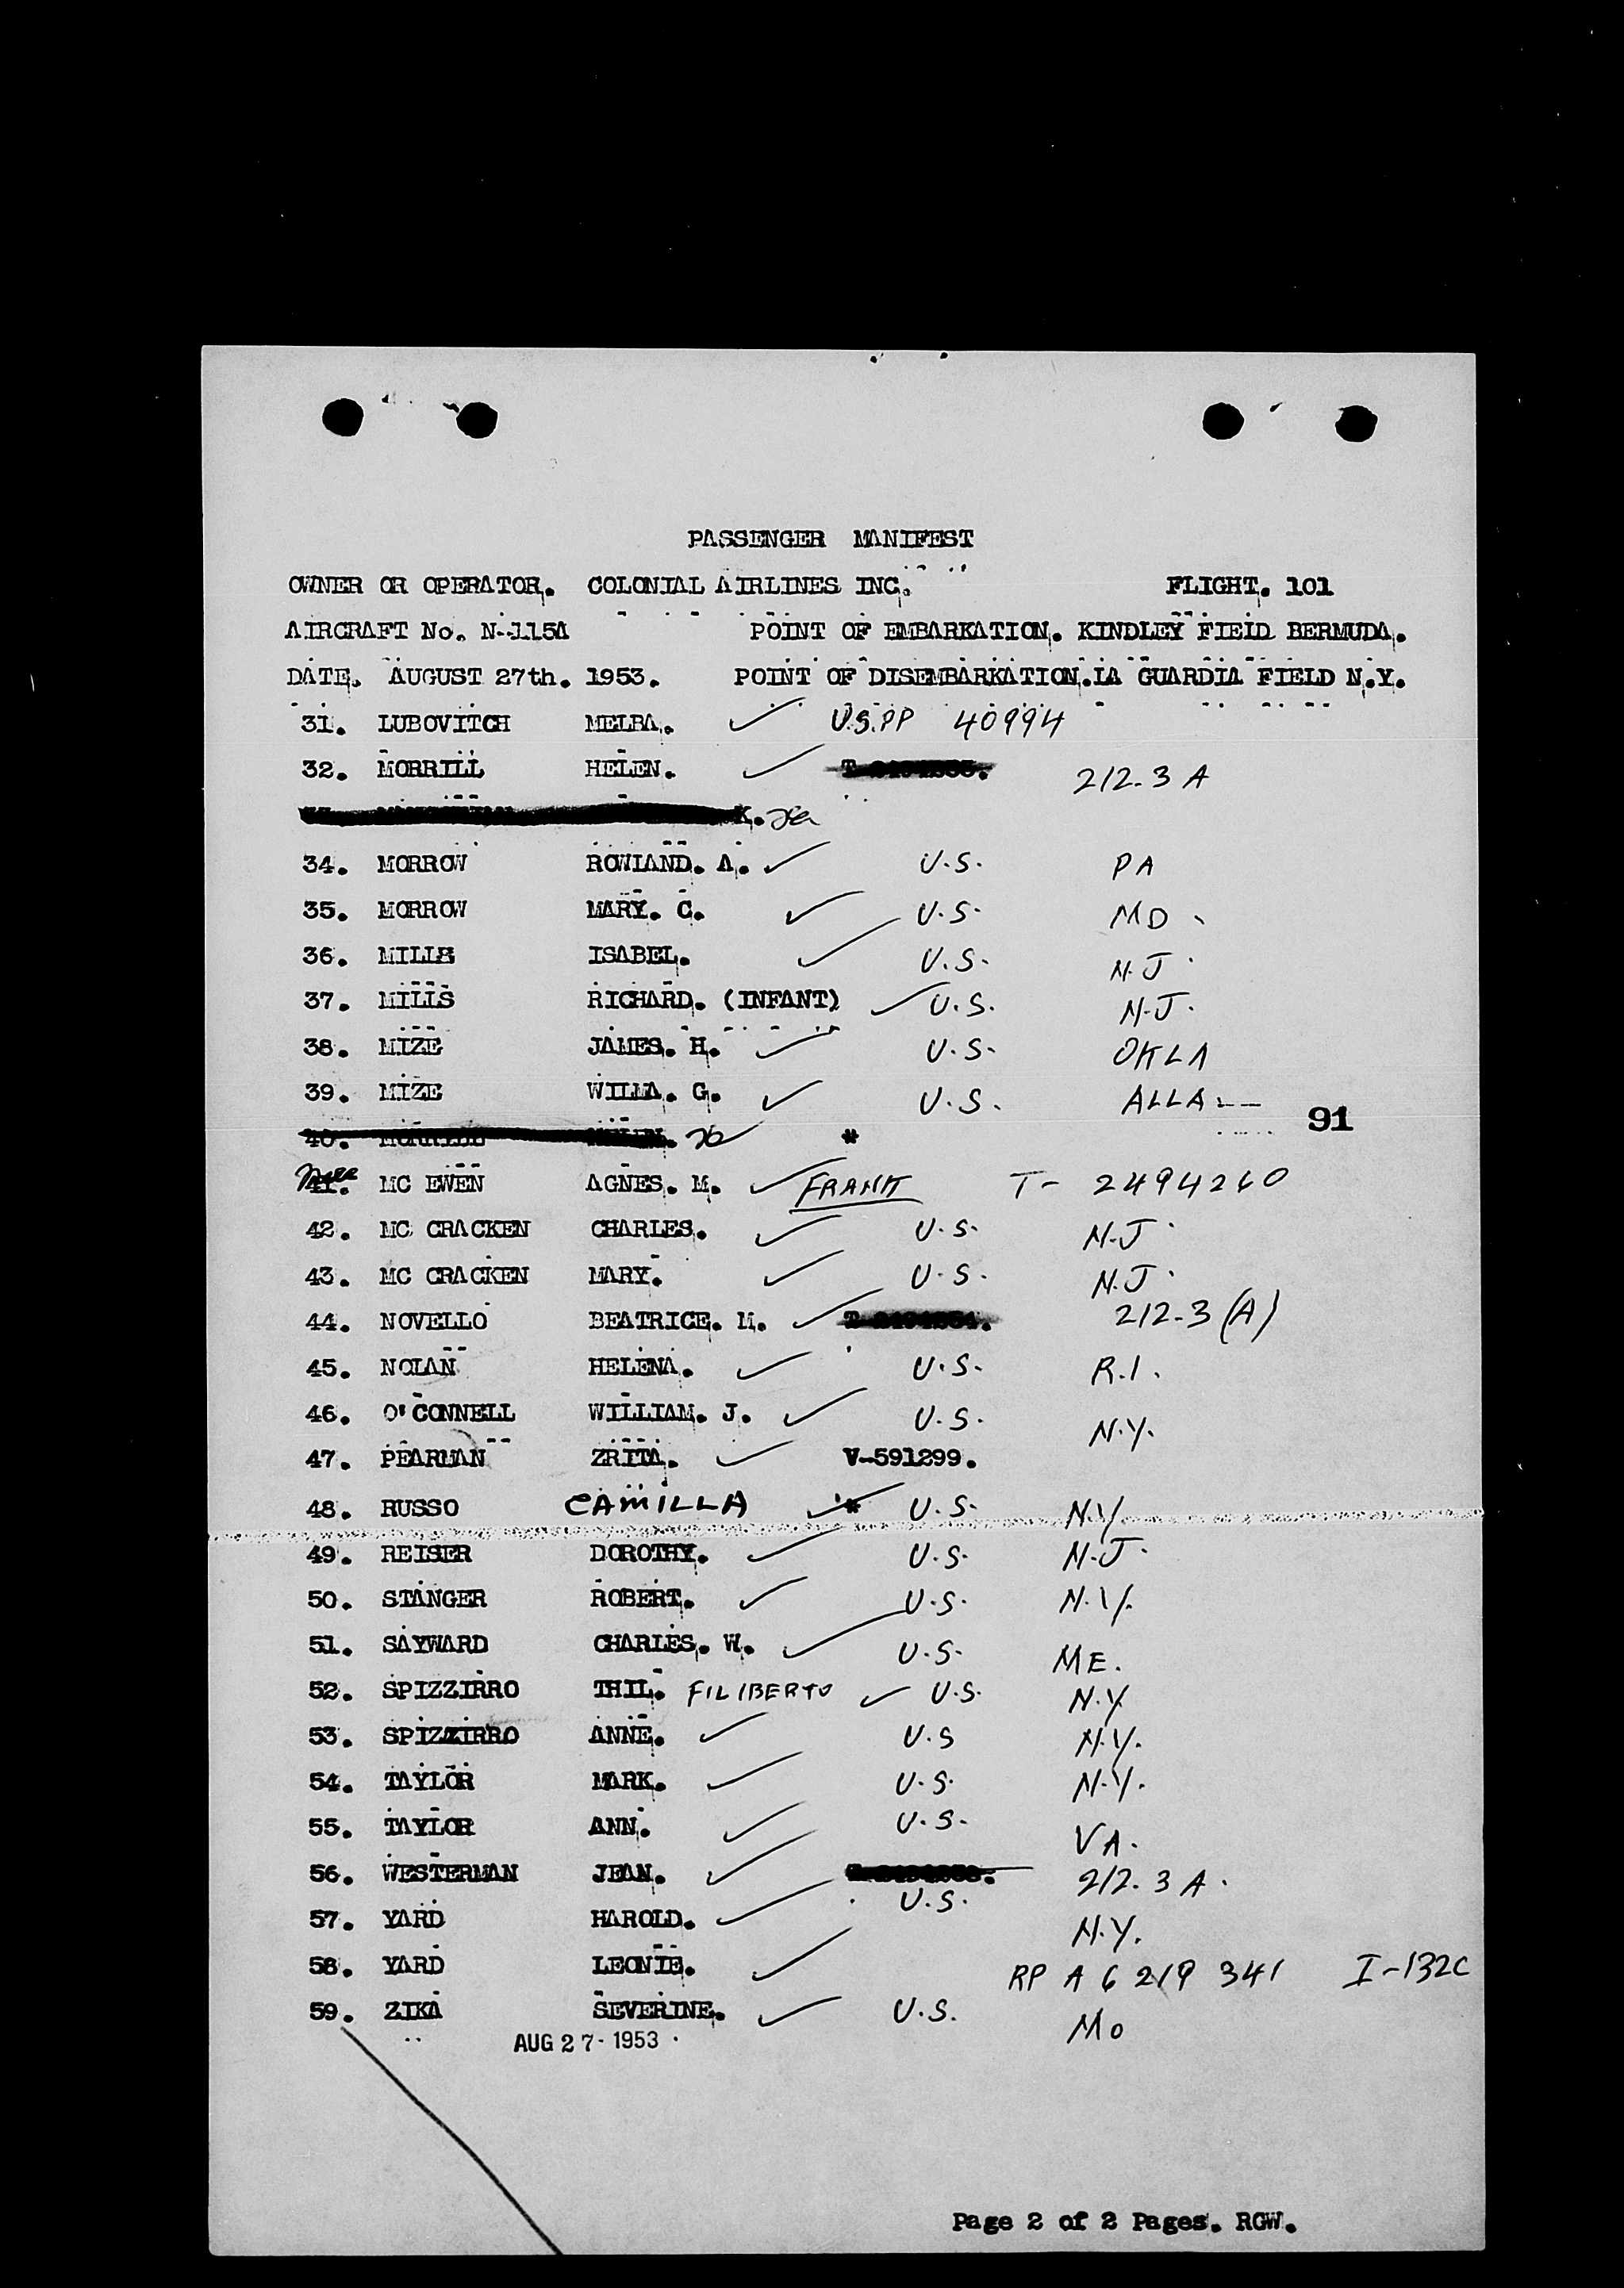 PASSENGER MANIFEST
OWNER OR OPERATOR. COLONIAL AIRLINES INC. FLIGHT. 101
AIRCRAFT No. N-115A POINT OF EMBARKATION. KINDLEY FIELD BERMUDA.
DATE. AUGUST 27th. 1953. POINT OF DISEMBARKATION.LA GUARDIA FIELD N.Y.
31. LUBOVITCH MELBA. ✓ U.S.PP 40994
32. MORRILL HELEN. ✓ 212-3 A
K.
34. MORROW ROWLAND. A. ✓ U.S. PA
35. MORROW MARY. C. ✓ U.S. MD
36. MILLS ISABEL. ✓ U.S. N.J.
37. MILLS RICHARD. (INFANT) ✓ U.S. N.J.
38. MIZE JAMES. H. ✓ U.S. OKLA
39. MIZE WILMA. G. ✓ U.S. ALLA --
91
40. *
41. MC EWEN AGNES. M. ✓ FRANK T- 2494260
42. MC CRACKEN CHARLES. ✓ U.S. N.J.
43. MC CRACKEN MARY. ✓ U.S. N.J.
44. NOVELLO BEATRICE. M. ✓ 212-3 (A)
45. NOLAN HELENA. ✓ U.S. R.I.
46. O'CONNELL WILLIAM. J. ✓ U.S. N.Y.
47. PEARMAN ZRITA. ✓ V-591299.
48. RUSSO CAMILLA ✓ * U.S. N.Y.
49. REISER DOROTHY. ✓ U.S. N.J.
50. STANGER ROBERT. ✓ U.S. N.Y.
51. SAYWARD CHARLES. W. ✓ U.S. ME.
52. SPIZZIRRO THIL. FILIBERTO ✓ U.S. N.Y
53. SPIZZIRRO ANNE. ✓ U.S N.Y.
54. TAYLOR MARK. ✓ U.S. N.Y.
55. TAYLOR ANN. ✓ U.S. VA.
56. WESTERMAN JEAN. ✓ 212-3 A.
57. YARD HAROLD. ✓ U.S. N.Y.
58. YARD LEONIE. ✓ RP A 6 219 341 I-132C
59. ZIKA SEVERINE. ✓ U.S. Mo
AUG 27-1953
Page 2 of 2 Pages. RGW.